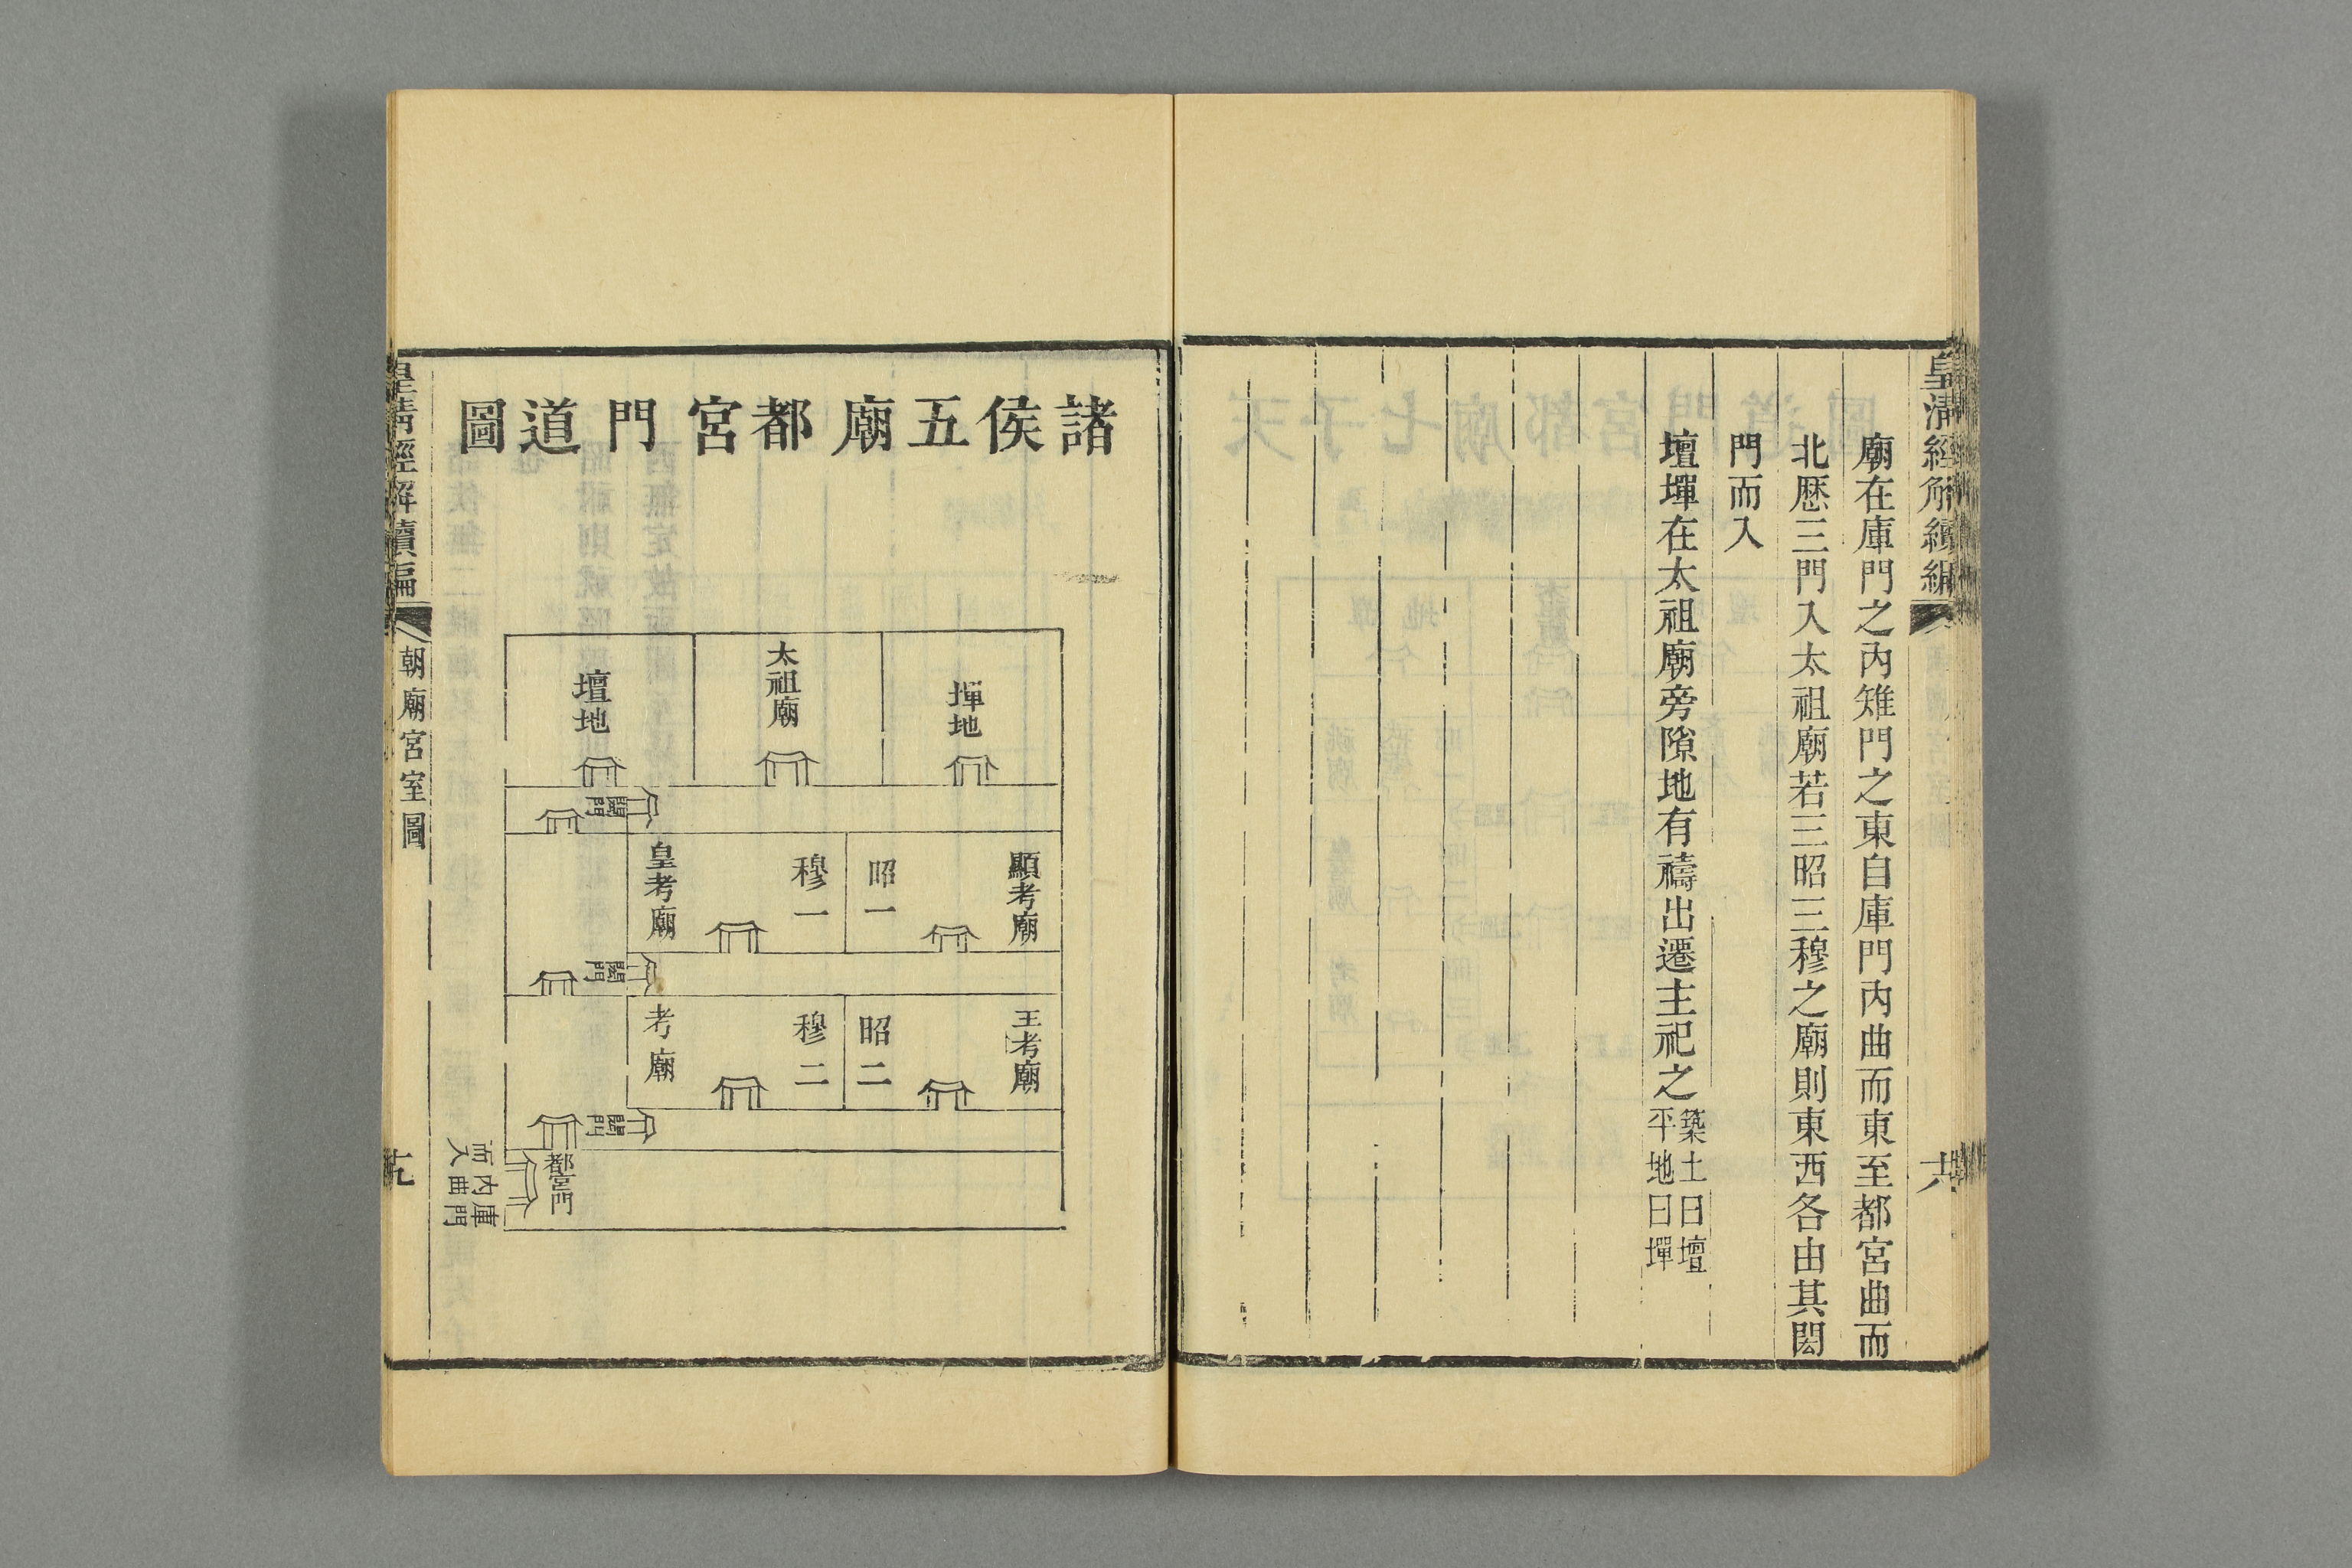 皇清經解續編
廟在庫門之內雉門之東自庫門內曲而東至都宮曲而
北歷三門入太祖廟若三昭三穆之廟則東西各由其閎
門而入
壇墠在太祖廟旁隙地有禱出遷主祀之築土曰壇平地曰墠
諸侯五廟都宮門道圖
墠地
太祖廟
壇地
閎門
顯考廟
昭一
穆一
皇考廟
閎門
王考廟
昭二
穆二
考廟
閎門
都宮門
庫門內曲而入
皇清經解續編
朝廟宮室圖